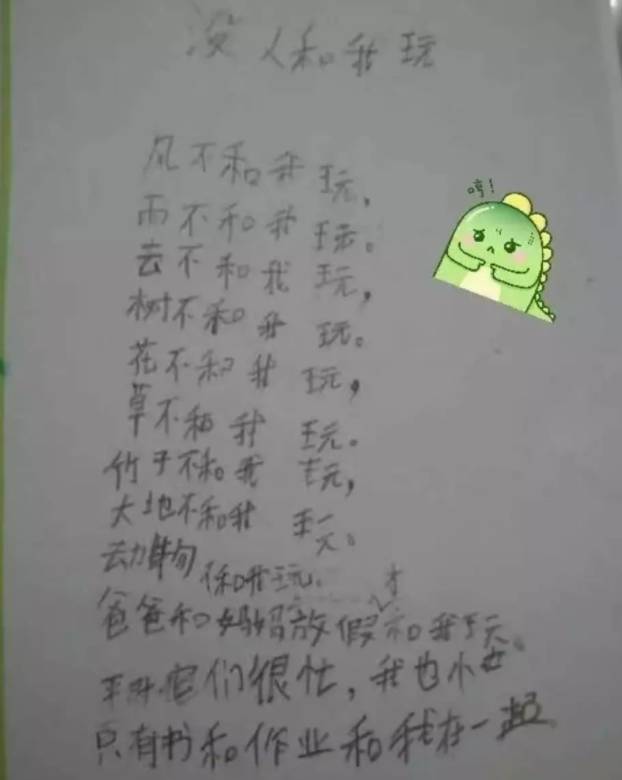 没人和我玩
风不和我玩，
哼！
雨不和我玩。
云不和我玩，
树不和我玩。
花不和我玩，
草不和我玩。
竹子不和我玩，
大地不和我玩。
动物不和我玩。
爸爸和妈妈放假才和我玩。
平时它们很忙，我也
只有书和作业和我在一起